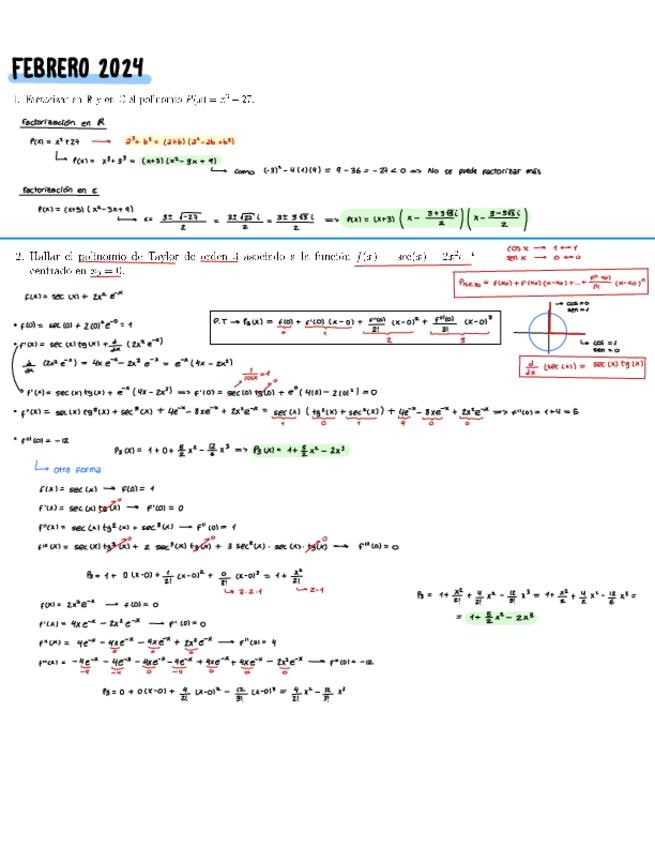 FEBRERO 2024
1. Factorizar en R y en C el polinomio P(x) = x³ + 27.
Factorización en R
P(x) = x³ + 27 → a³ + b³ = (a+b)(a² - ab + b²)
P(x) = x³ + 3³ = (x+3)(x² - 3x + 9)
como (-3)² - 4(1)(9) = 9 - 36 = -27 < 0 => No se puede factorizar más
Factorización en C
P(x) = (x+3)(x² - 3x + 9)
x = 3 ± √-27 / 2 = 3 ± √27 i / 2 = 3 ± 3√3 i / 2 => P(x) = (x+3) (x - 3+3√3 i / 2) (x - 3-3√3 i / 2)
2. Hallar el polinomio de Taylor de orden 3 asociado a la función f(x) = sec(x) + 2x²e⁻ˣ
centrado en x₀ = 0.
cos x → 1 ↔ 1
sen x → 0 ↔ 0
f(x) = sec(x) + 2x² e⁻ˣ
= f(x₀) + f'(x₀)(x-x₀) + ... + fⁿ(x₀)/n! (x-x₀)ⁿ
cos = 0
sen = 1
cos = 1
sen = 0
d/dx (sec(x)) = sec(x) tg(x)
• f(0) = sec(0) + 2(0)²e⁻⁰ = 1
P.T → P₃(x) = f(0) + f'(0)(x-0) + f''(0)/2! (x-0)² + f'''(0)/3! (x-0)³
0 1 2 3
• f'(x) = sec(x) tg(x) + d/dx (2x² e⁻ˣ)
d/dx (2x² e⁻ˣ) = 4x e⁻ˣ - 2x² e⁻ˣ = e⁻ˣ (4x - 2x²)
1/cosx = 1
f'(x) = sec(x) tg(x) + e⁻ˣ (4x - 2x²) => f'(0) = sec(0) tg(0) + e⁰ (4(0) - 2(0)²) = 0
• f''(x) = sec(x) tg²(x) + sec³(x) + 4e⁻ˣ - 8xe⁻ˣ + 2x²e⁻ˣ = sec(x) (tg²(x) + sec²(x)) + 4e⁻ˣ - 8xe⁻ˣ + 2x²e⁻ˣ => f''(0) = 1+4 = 5
1 0 1 4 0 0
• f'''(0) = -12
P₃(x) = 1 + 0 + 5/2 x² - 12/6 x³ => P₃(x) = 1 + 5/2 x² - 2x³
otra forma
f(x) = sec(x) → f(0) = 1
f'(x) = sec(x) tg(x) → f'(0) = 0
f''(x) = sec(x) tg²(x) + sec³(x) → f''(0) = 1
f'''(x) = sec(x) tg³(x) + 2 sec³(x) tg(x) + 3 sec²(x) · sec(x) · tg(x) → f'''(0) = 0
P₃ = 1 + 0(x-0) + 1/2! (x-0)² + 0/3! (x-0)³ = 1 + x²/2!
3·2·1 2·1
f(x) = 2x²e⁻ˣ → f(0) = 0
P₃ = 1 + x²/2! + 4/2! x² - 12/3! x³ = 1 + x²/2 + 4/2 x² - 12/6 x³ =
f'(x) = 4xe⁻ˣ - 2x² e⁻ˣ → f'(0) = 0
= 1 + 5/2 x² - 2x³
f''(x) = 4e⁻ˣ - 4xe⁻ˣ - 4xe⁻ˣ + 2x²e⁻ˣ → f''(0) = 4
0 0 0
f'''(x) = -4e⁻ˣ - 4e⁻ˣ - 4xe⁻ˣ - 4e⁻ˣ + 4xe⁻ˣ + 4xe⁻ˣ - 2x²e⁻ˣ → f'''(0) = -12
-4 -4 0 -4 0 0 0
P₃ = 0 + 0(x-0) + 4/2! (x-0)² - 12/3! (x-0)³ = 4/2! x² - 12/3! x³